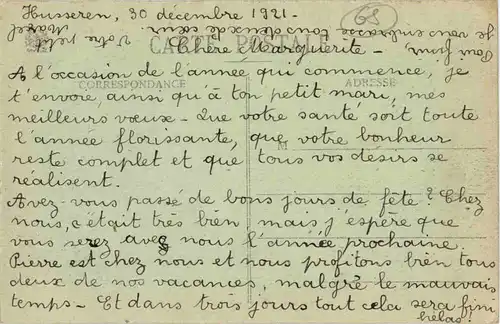 Husseren, 30 décembre 1921.
68
CARTE POSTALE
Chère Marguerite -
CORRESPONDANCE
ADRESSE
A l'occasion de l'année qui commence, je
t'envoie, ainsi qu'à ton petit mari, mes
meilleurs vœux - Que votre santé soit toute
l'année florissante, que votre bonheur
reste complet et que tous vos désirs se
réalisent.
Avez-vous passé de bons jours de fête? Chez
nous, c'était très bien mais j'espère que
vous serez avec nous l'année prochaine.
Pierre est chez nous et nous profitons bien tous
deux de nos vacances, malgré le mauvais
temps - Et dans trois jours tout cela sera fini
hélas!
je vous embrasse tous deux de cœur
Votre petit